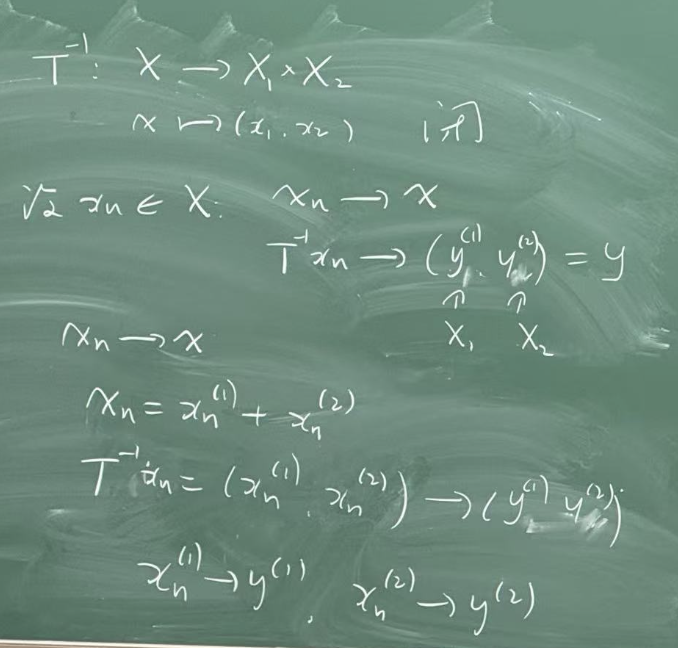 T⁻¹: X → X₁ × X₂
x ↦ (x₁, x₂) 闭
设 xₙ ∈ X. xₙ → x
T⁻¹xₙ → (y⁽¹⁾, y⁽²⁾) = y
↑ ↑
X₁ X₂
xₙ → x
xₙ = xₙ⁽¹⁾ + xₙ⁽²⁾
T⁻¹xₙ = (xₙ⁽¹⁾, xₙ⁽²⁾) → (y⁽¹⁾ y⁽²⁾)
xₙ⁽¹⁾ → y⁽¹⁾, xₙ⁽²⁾ → y⁽²⁾